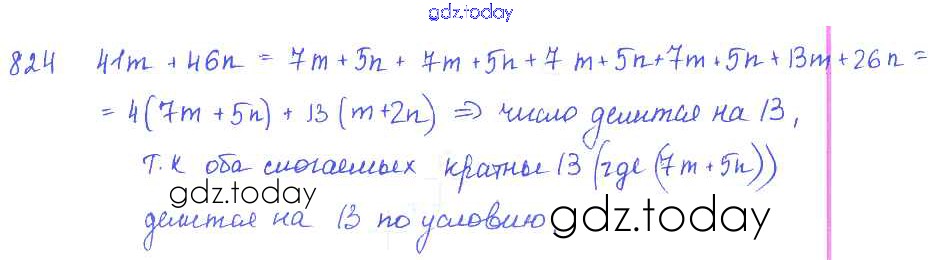 gdz.today
824 41m + 46n = 7m + 5n + 7m + 5n + 7m + 5n + 7m + 5n + 13m + 26n =
= 4(7m + 5n) + 13(m + 2n) ⇒ число делится на 13,
т.к оба слогаемых кратны 13 (где (7m + 5n))
gdz.today
делится на 13 по условию
gdz.today